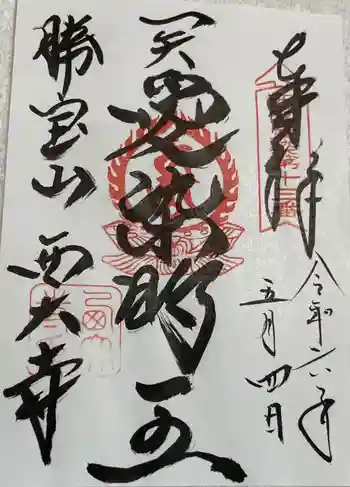 奉拝
令和六年
五月四日
愛染明王
勝宝山
西大寺